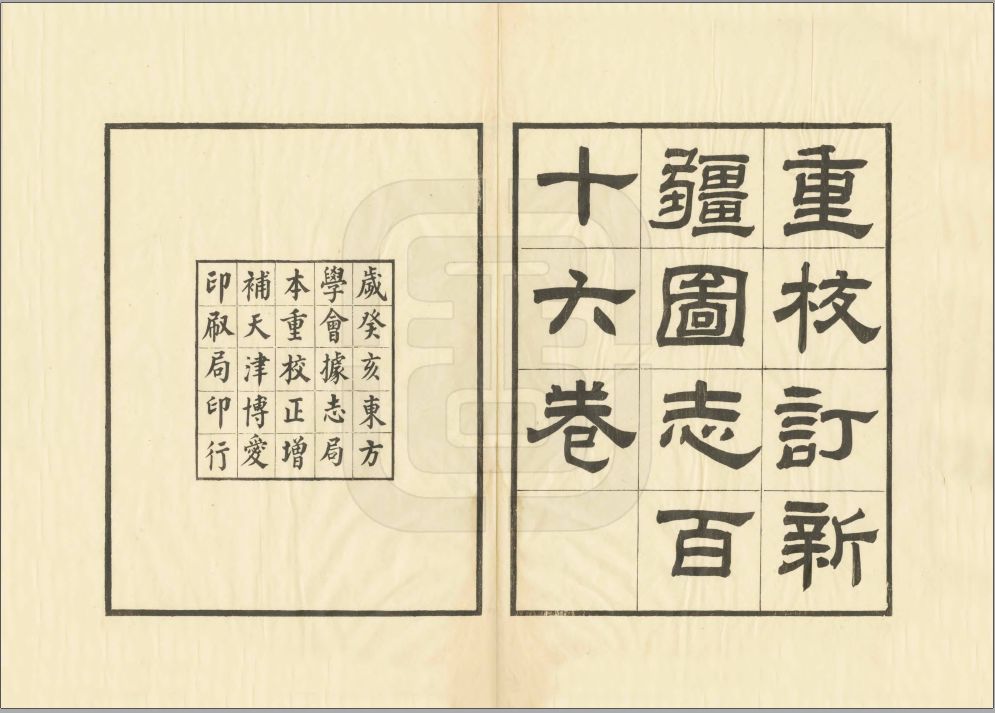 重校訂新
疆圖志百
十六卷
歲癸亥東方
學會據志局
本重校正增
補天津博愛
印刷局印行